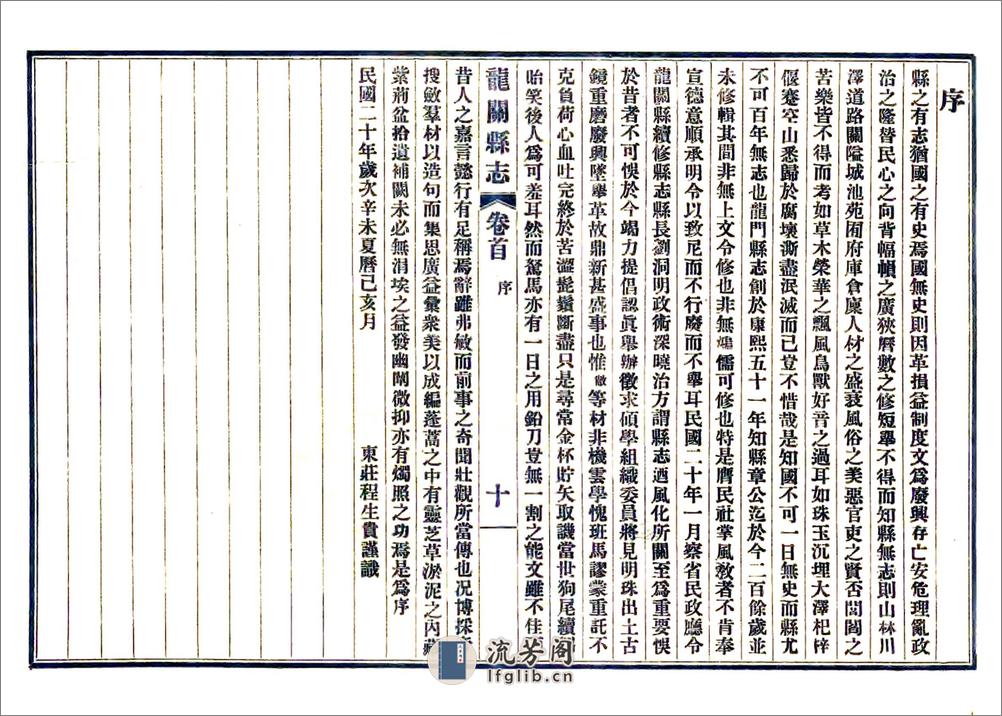 序
縣之有志猶國之有史焉國無史則因革損益制度文爲廢興存亡安危理亂政
治之隆替民心之向背幅幀之廣狹曆數之修短舉不得而知縣無志則山林川
澤道路關隘城池苑囿府庫倉廩人材之盛衰風俗之美惡官吏之賢否閭閻之
苦樂皆不得而考如草木榮華之飄風鳥獸好音之過耳如珠玉沉理大澤杞梓
偃蹇空山悉歸於腐壞澌盡泯滅而已豈不惜哉是知國不可一日無史而縣尤
不可百年無志也龍門縣志創於康熙五十一年知縣章公迄於今二百餘歲並
未修輯其間非無上文令修也非無鴻儒可修也特是膺民社掌風敎者不肯奉
宣德意順承明令以致尼而不行廢而不舉耳民國二十年一月察省民政廳令
龍關縣續修縣志縣長劉洞明政術深曉治方謂縣志迺風化所關至爲重要悞
於昔者不可悞於今竭力提倡認眞舉辦徵求碩學組織委員將見明珠出土古
鏡重磨廢興墜舉革故鼎新甚盛事也惟敝等材非機雲學愧班馬謬蒙重託不
克負荷心血吐完終於苦澀髭鬚斷盡只是尋常金杯貯矢取譏當世狗尾續
貽笑後人爲可羞耳然而駑馬亦有一日之用鉛刀豈無一割之能文雖不佳
龍關縣志 卷首 序 十
昔人之嘉言懿行有足稱焉辭雖弗敏而前事之奇聞壯觀所當傳也况博採
搜斂羣材以造句而集思廣益彙衆美以成編蓬蒿之中有靈芝草淤泥之內藏
紫荊盆拾遺補闕未必無涓埃之益發幽闡微抑亦有燭照之功焉是爲序
民國二十年歲次辛未夏曆己亥月 東莊程生貴謹識
流芳阁
lfglib.cn